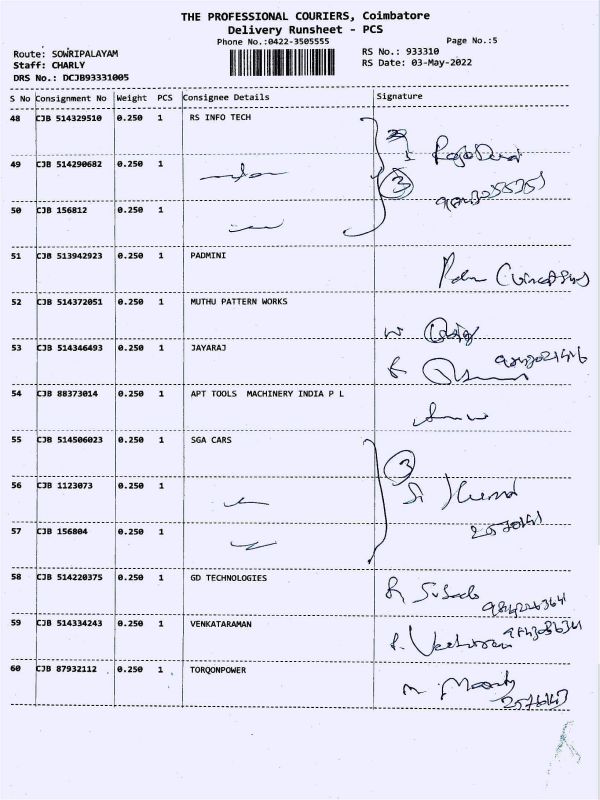 THE PROFESSIONAL COURIERS, Coimbatore
Delivery Runsheet - PCS
Phone No.:0422-3505555
Page No.:5
Route: SOWRIPALAYAM
RS No.: 933310
Staff: CHARLY
RS Date: 03-May-2022
DRS No.: DCJB93331005
S No Consignment No Weight PCS Consignee Details Signature
48 CJB 514329510 0.250 1 RS INFO TECH
49 CJB 514290682 0.250 1
3
50 CJB 156812 0.250 1
51 CJB 513942923 0.250 1 PADMINI
52 CJB 514372051 0.250 1 MUTHU PATTERN WORKS
53 CJB 514346493 0.250 1 JAYARAJ
54 CJB 88373014 0.250 1 APT TOOLS MACHINERY INDIA P L
55 CJB 514506023 0.250 1 SGA CARS
3
56 CJB 1123073 0.250 1
57 CJB 156804 0.250 1
58 CJB 514220375 0.250 1 GD TECHNOLOGIES
59 CJB 514334243 0.250 1 VENKATARAMAN
60 CJB 87932112 0.250 1 TORQONPOWER